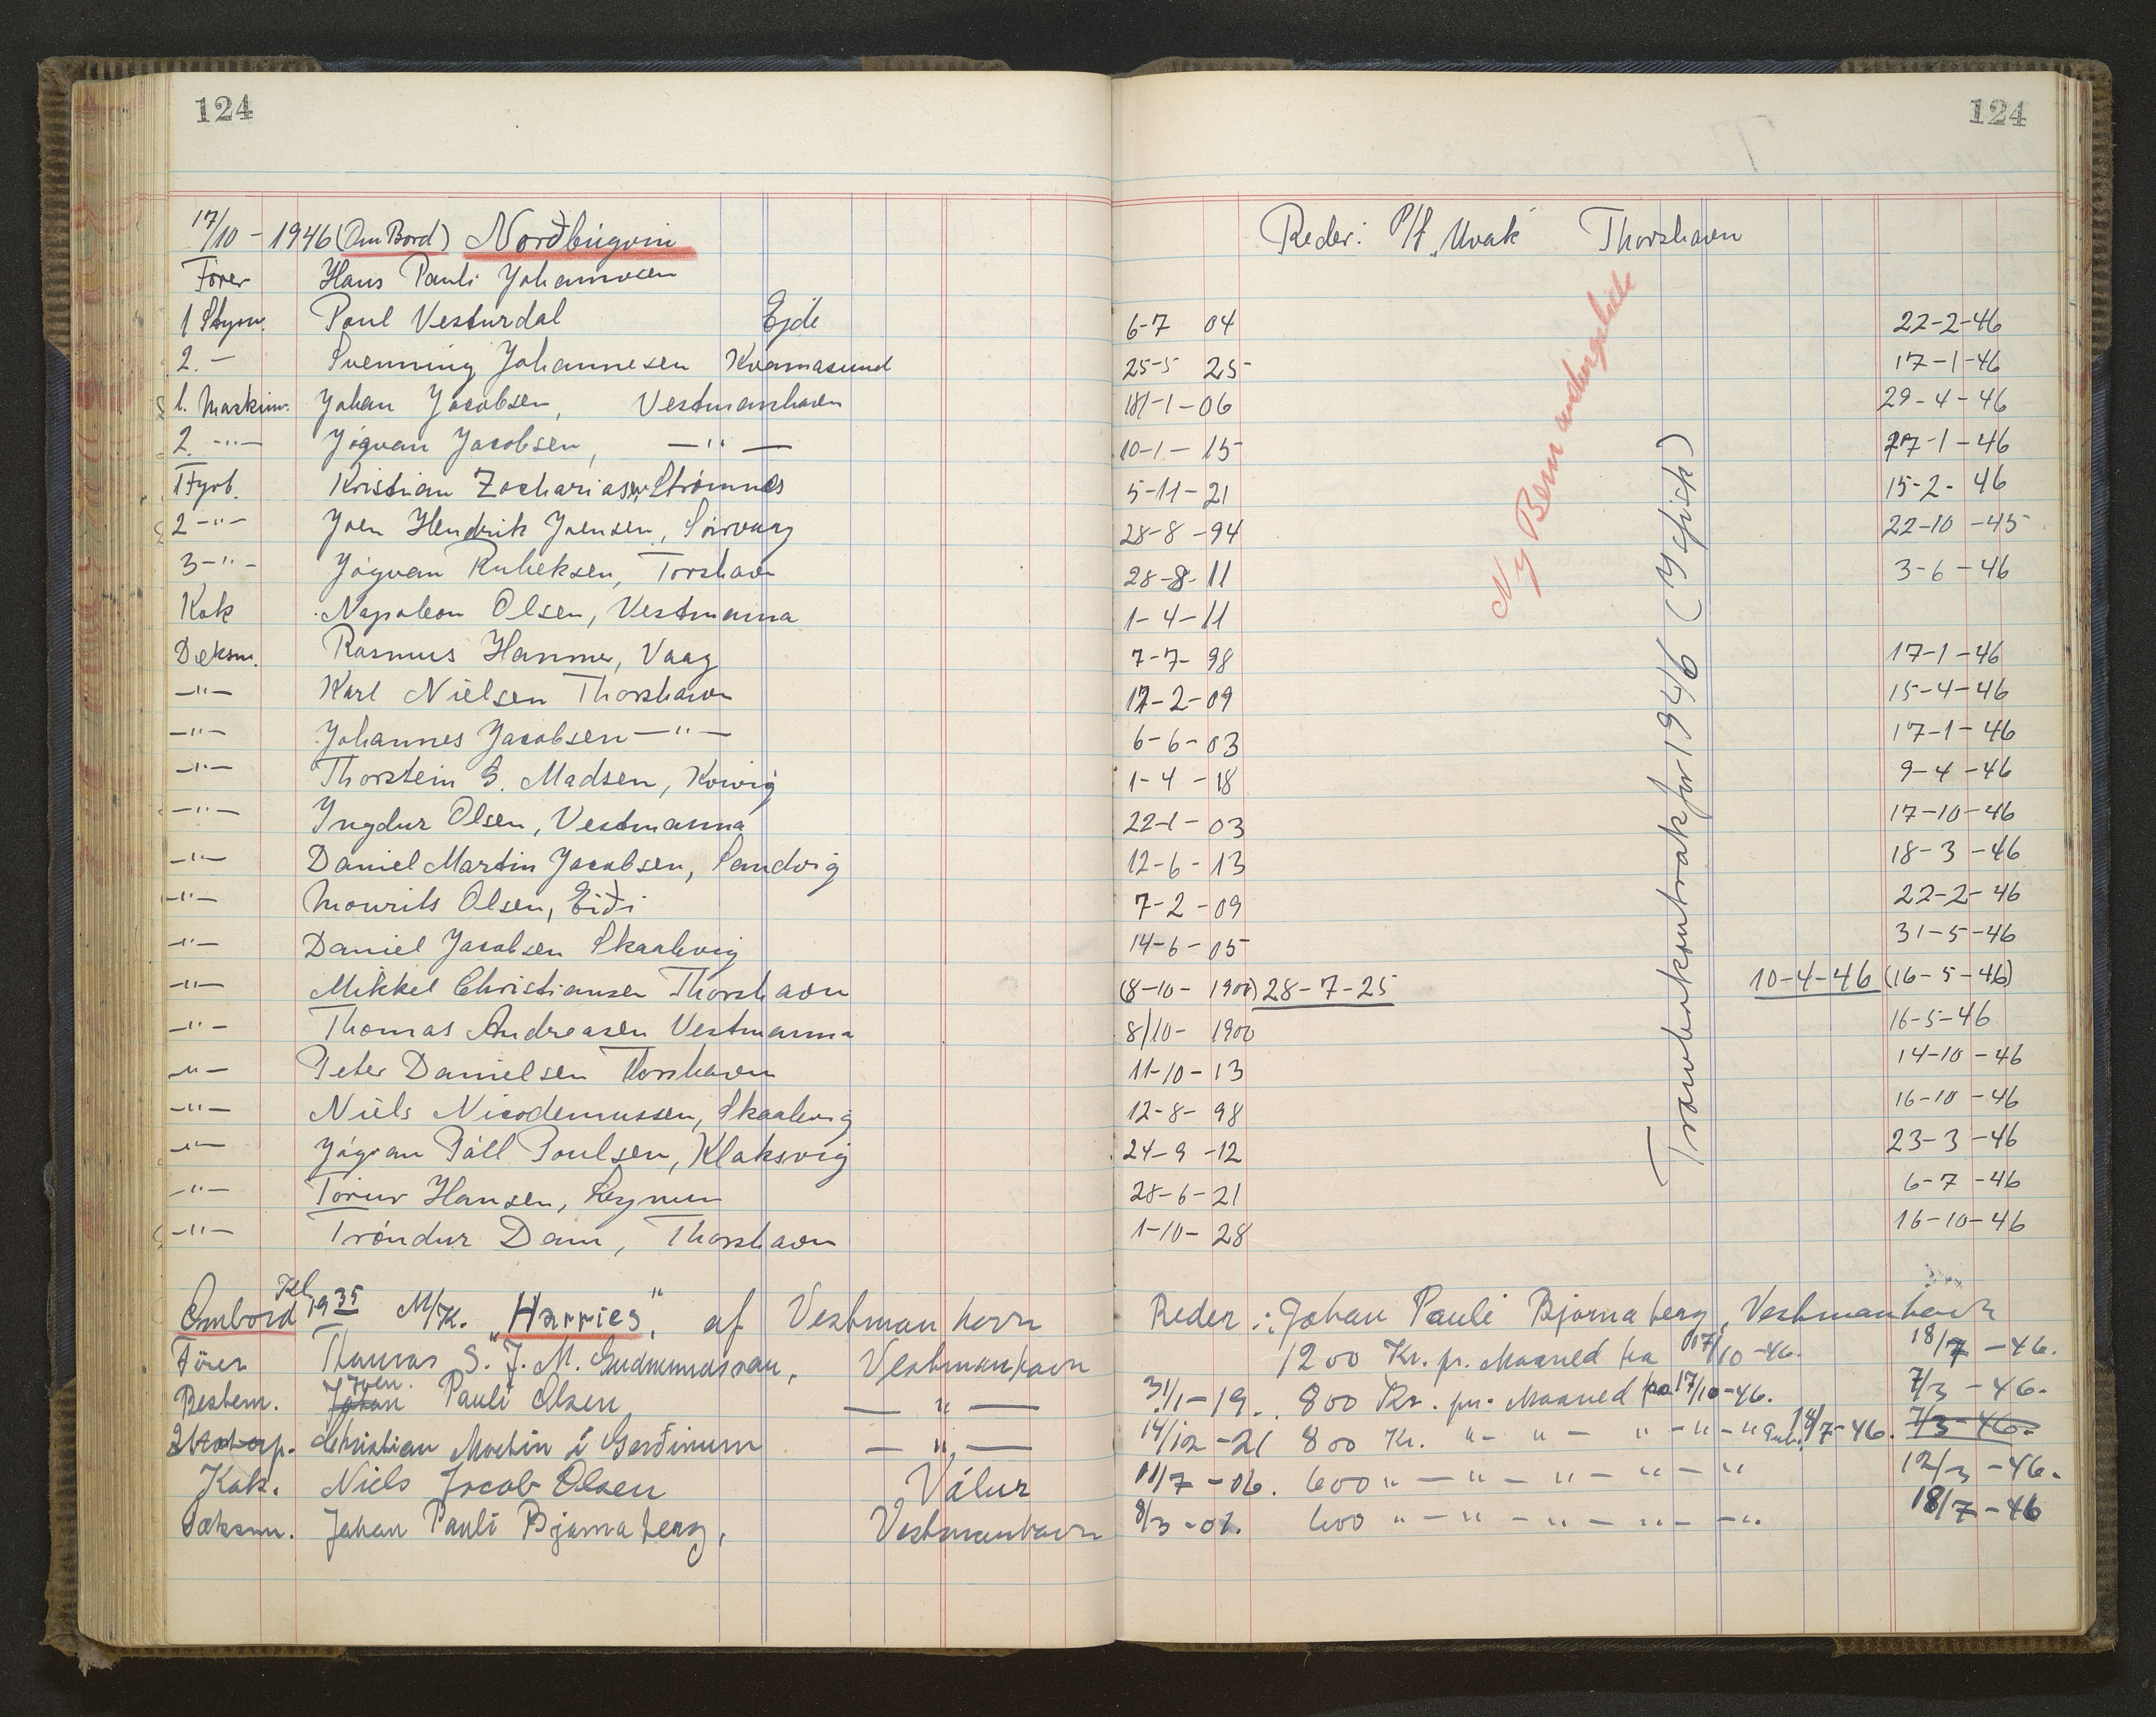 124
124
17/10 - 1946 (Om Bord) Norðbúgvin Reder: P/f. Uvak Thorshavn
Fører Hans Pauli Johannesen
1 Styrm. Poul Vesturdal Ejde 6-7 04 22-2-46
2. — Svenning Johannesen Kvamasund 25-5 25- 17-1-46
1. Maskinm. Johan Jacobsen, Vestmanhavn 18/-1-06 29-4-46
2. —"— Jógvan Jacobsen, —"— 10-1-15 27-1-46
1 Fyrb. Kristian Zachariasen, Strømnæs 5-11-21 15-2-46
2 —"— Joen Hendrik Joensen, Sørvaag 28-8-94 22-10-45
3 —"— Jógvan Rubeksen, Torshavn 28-8-11 3-6-46
Kok Napoleon Olsen, Vestmanna 1-4-11
Dæksm. Rasmus Hammer, Vaag 7-7-98 17-1-46
—"— Karl Nielsen Thorshavn 12-2-09 15-4-46
—"— Johannes Jacobsen —"— 6-6-03 17-1-46
—"— Thorstein G. Madsen, Kvivig 1-4-18 9-4-46
—"— Ingdur Olsen, Vestmanna 22-1-03 17-10-46
—"— Daniel Martin Jacobsen, Sandvig 12-6-13 18-3-46
—"— Mourits Olsen, Eiði 7-2-09 22-2-46
—"— Daniel Jacobsen Skaalevig 14-6-05 31-5-46
—"— Mikkel Christiansen Thorshavn (8-10-1900) 28-7-25 10-4-46 (16-5-46)
—"— Thomas Andreasen Vestmanna 8/10-1900 16-5-46
—"— Peter Danielsen Thorshavn 11-10-13 14-10-46
—"— Niels Nicodemussen, Skaalevig 12-8-98 16-10-46
—"— Jógvan Páll Poulsen, Klaksvig 24-9-12 23-3-46
—"— Tórur Hansen, Leynum 28-6-21 6-7-46
—"— Tróndur Dam, Thorshavn 1-10-28 16-10-46
Ny Bemandingsliste
Trawlerkontrakt for 1946 (Isfisk)
Ombord Kl. 19 35 M/K. "Harries", af Vestmanhavn Reder: Johan Pauli Bjarnaberg, Vestmanhavn
Fører Thomas S. J. M. Gudmundssan, Vestmanhavn 1200 Kr. pr. Maaned fra 17/10-46. 18/7-46.
Bestem. Johan Joen. Pauli Olsen —"— 31/1-19. 800 Kr. pr. Maaned fra 17/10-46. 7/3-46.
Motorp. Christian Martin í Gerðinum —"— 14/12-21 800 Kr. "—"—"—"—" 18/7-46. 7/3-46.
Kok. Niels Jacob Olsen Válur 11/7-06. 600 "—"—"—"—" 12/3-46.
Dæksm. Johan Pauli Bjarnaberg, Vestmanhavn 8/3-02. 600 "—"—"—"—" 18/7-46